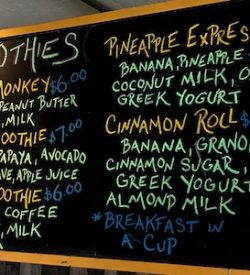 OTHIES
MONKEY $6.00
PEANUT BUTTER
, MILK
OOTHIE $7.00
PAPAYA, AVOCADO
, APPLE JUICE
OOTHIE $6.00
COFFEE
, MILK
PINEAPPLE EXPRES
BANANA, PINEAPPLE
COCONUT MILK, O
GREEK YOGURT
CINNAMON ROLL $
BANANA, GRANO
CINNAMON SUGAR,
GREEK YOGURT
ALMOND MILK
*BREAKFAST IN
A CUP